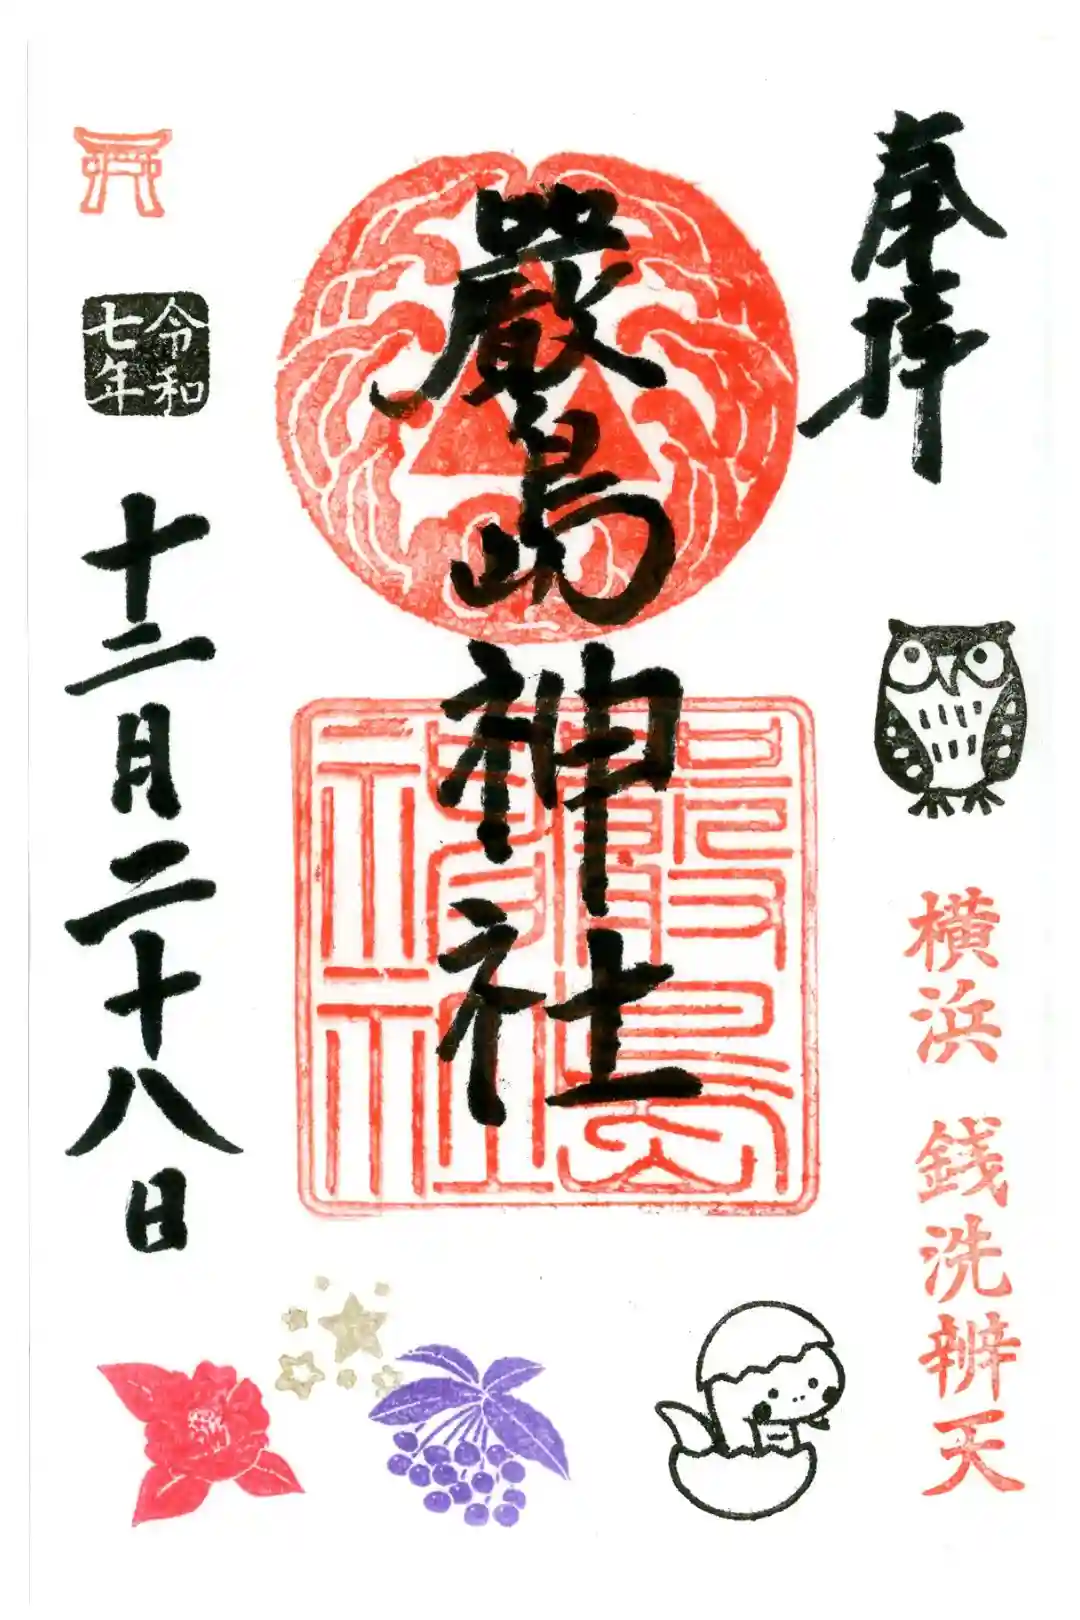 奉拝
横浜 銭洗辨天
嚴島神社
嚴島
神社
令和
七年
十二月二十八日